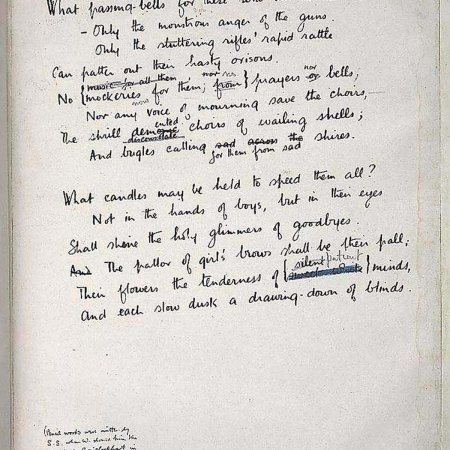 What passing-bells for these who
- Only the monstrous anger of the guns.
Only the stuttering rifles' rapid rattle
Can patter out their hasty orisons.
music for all them nor no
No mockeries for them; from prayers nor bells;
now
Nor any voice of mourning save the choirs,
ented
The shrill demonic choirs of wailing shells;
disconsolate
And bugles calling sad across the shires.
for them from sad
What candles may be held to speed them all?
Not in the hands of boys, but in their eyes
Shall shine the holy glimmers of goodbyes.
And The pallor of girls' brows shall be their pall;
silent patient
Their flowers the tenderness of minds,
And each slow dusk a drawing-down of blinds.
(Pencil words were written by
S.S. when W. showed him the
in